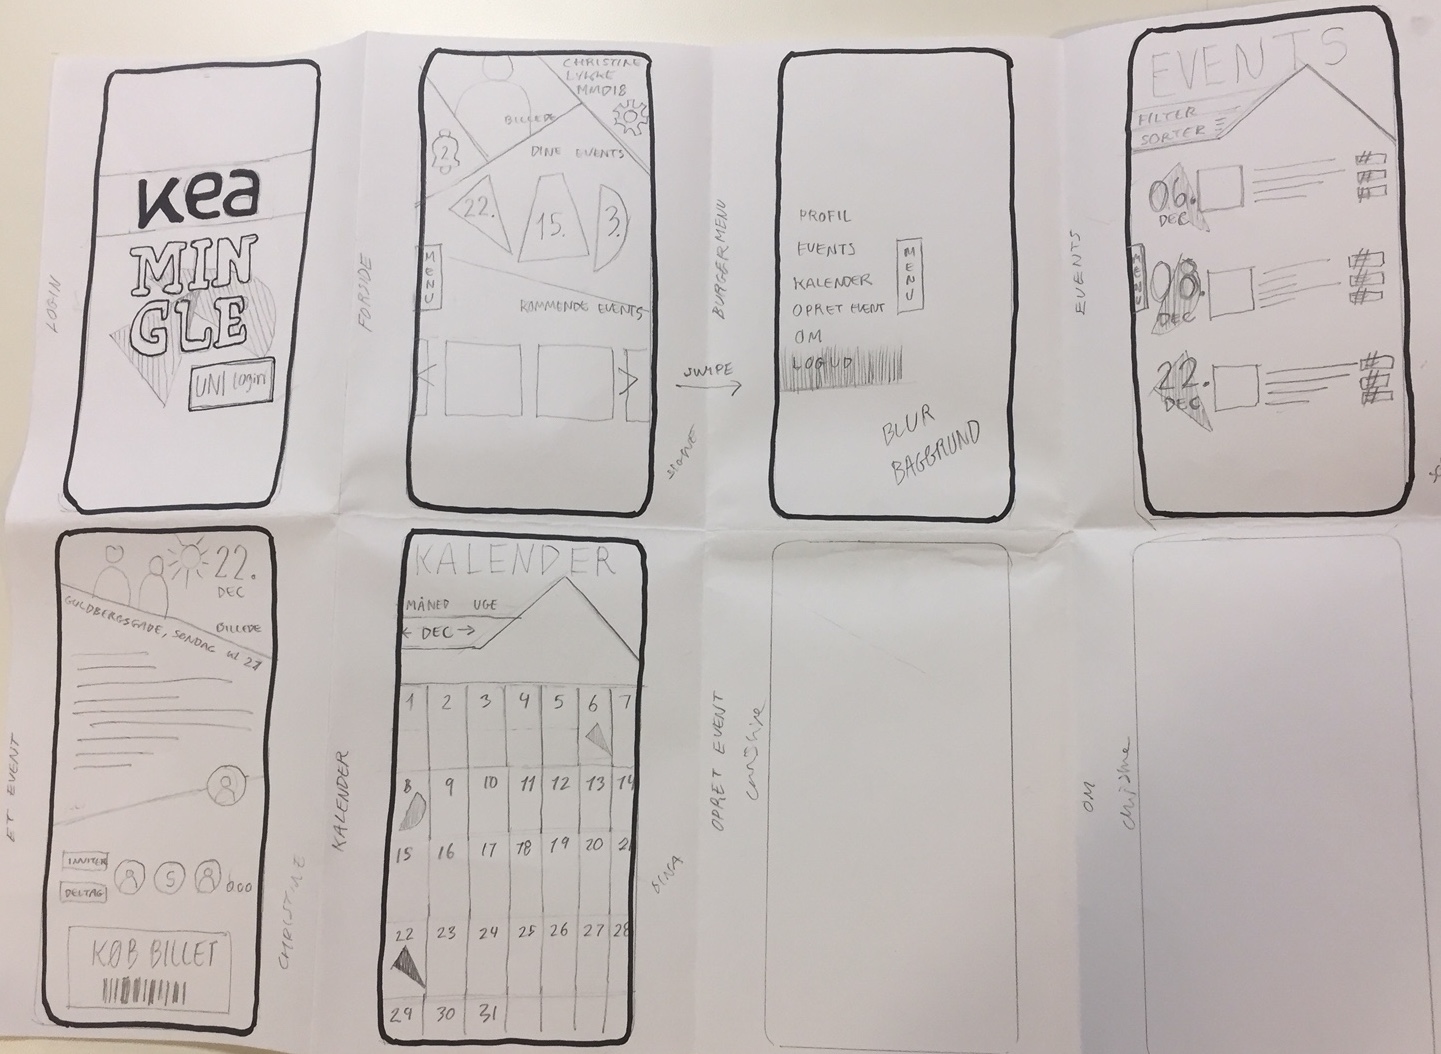 LOGIN
kea
MIN
GLE
UNI login
FORSIDE
CHRISTINE
LYKKE
MMD18
BILLEDE
2
DINE EVENTS
22.
15.
3.
MENU
KOMMENDE EVENTS
SWIPE
BURGERMENU
PROFIL
EVENTS
KALENDER
OPRET EVENT
OM
LOG UD
MENU
BLUR
BAGGRUND
EVENTS
EVENTS
FILTER
SORTER
06.
DEC
#
#
#
MENU
08.
DEC
#
#
#
22.
DEC
#
#
#
ET EVENT
22.
DEC
BILLEDE
GULDBERGSGADE, SØNDAG kl 27
INVITER
DELTAG
S
KØB BILLET
CHRISTINE
KALENDER
KALENDER
MÅNED UGE
← DEC →
1 2 3 4 5 6 7
8 9 10 11 12 13 14
15 16 17 18 19 20 21
22 23 24 25 26 27 28
29 30 31
OPRET EVENT
OM